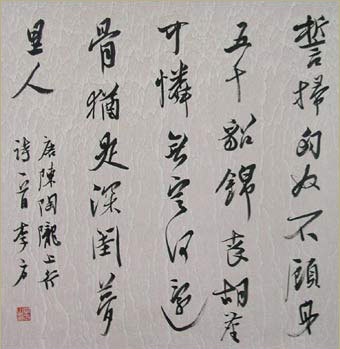 誓掃匈奴不顧身
五千貂錦喪胡塵
可憐無定河邊
骨猶是深閨夢
里人
唐陳陶隴上行
詩一首李方